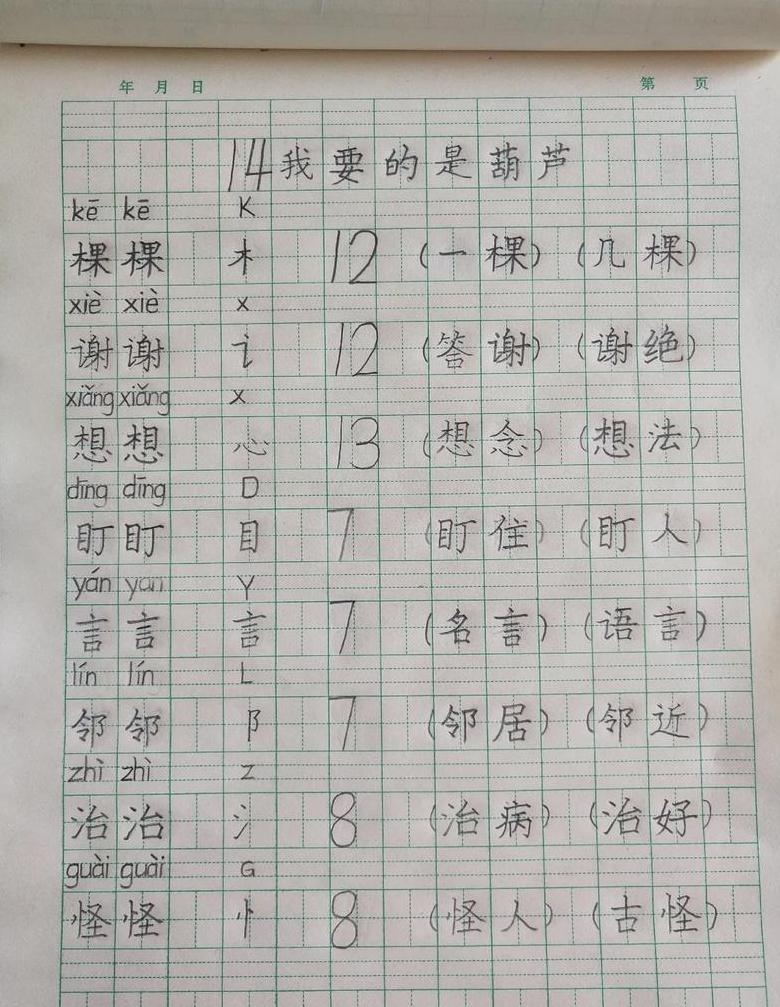 年 月 日 第 页
14我要的是葫芦
kē kē K
棵 棵 木 12 (一棵) (几棵)
xiè xiè x
谢 谢 讠 12 (答谢) (谢绝)
xiǎng xiǎng x
想 想 心 13 (想念) (想法)
dīng dīng D
盯 盯 目 7 (盯住) (盯人)
yán yan Y
言 言 言 7 (名言) (语言)
lín lín L
邻 邻 阝 7 (邻居) (邻近)
zhì zhì z
治 治 氵 8 (治病) (治好)
guài guài G
怪 怪 忄 8 (怪人) (古怪)